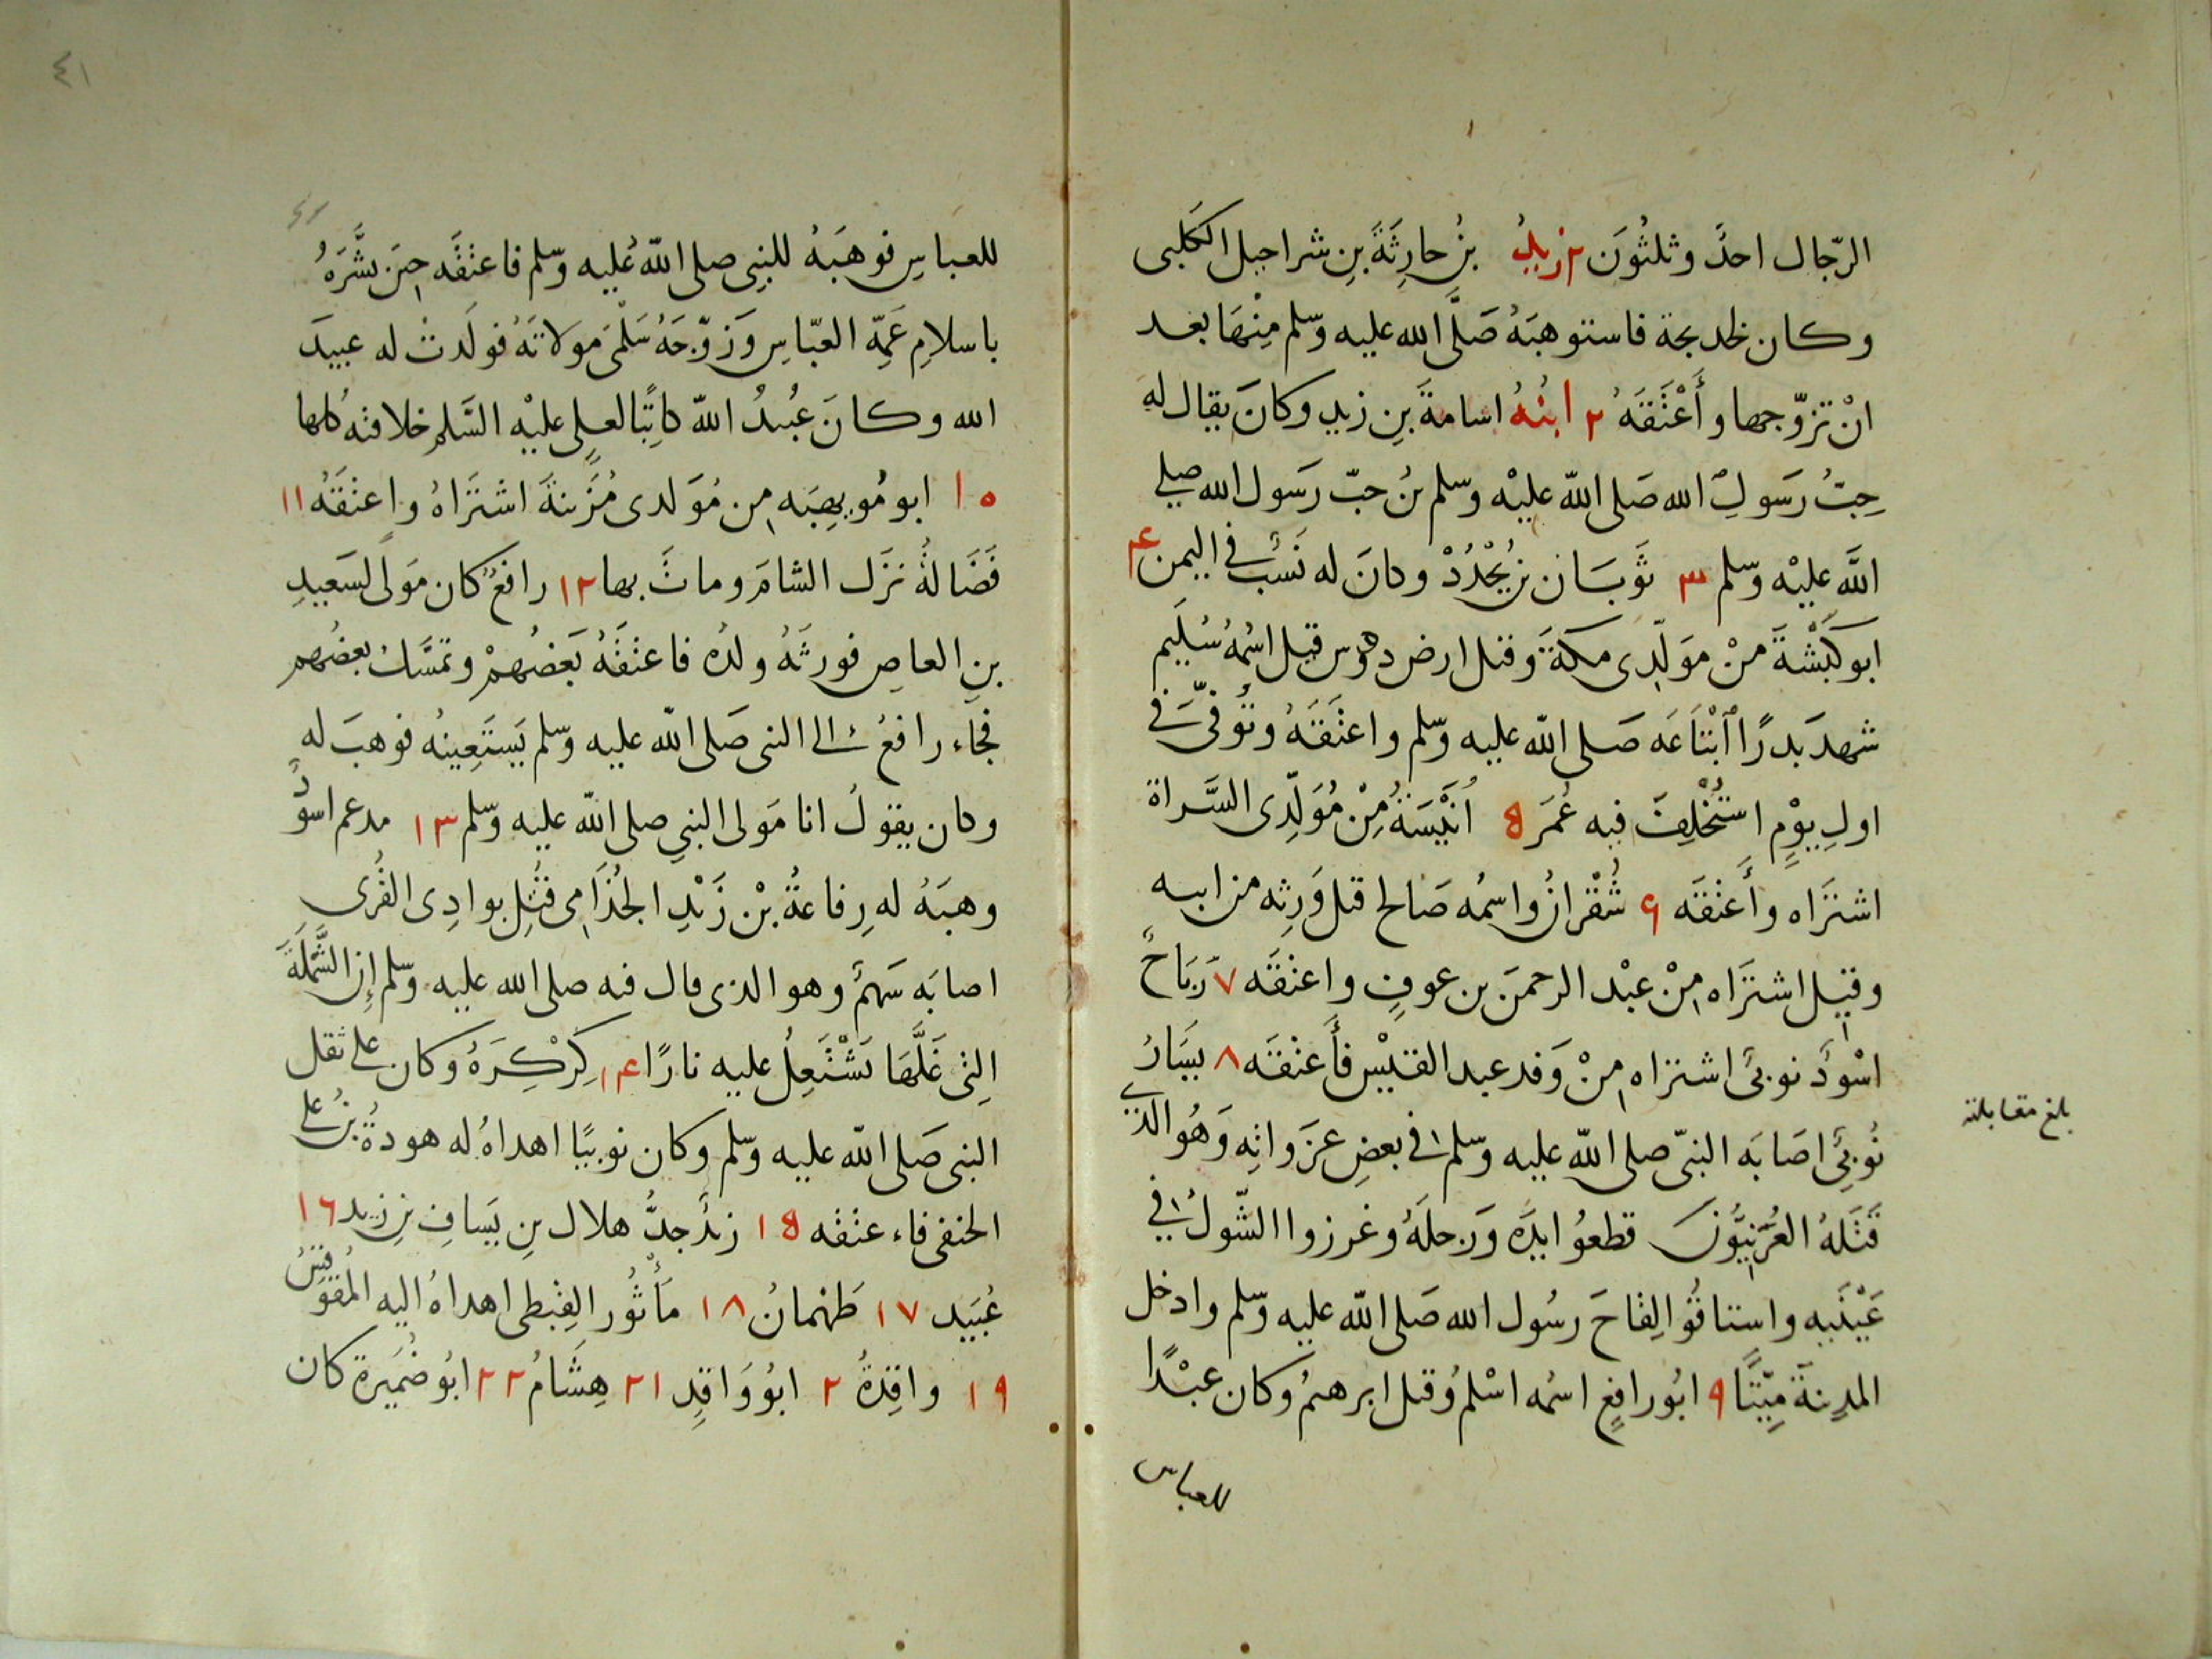 الرّجال احدٌ وثلثُونَ زيدُ بنُ حارِثَةَ بنِ شراحيل الكلبى
وكان لخديجة فاستوهبَهُ صَلَّى الله عليه وسلم مِنْهَا بعد
انْ تزوّجها وأَعْتَقَهُ ٢ ابنُهُ اسامةَ بنِ زيدٍ وكانَ يقال له
حِبُّ رَسولِ الله صَلى اللّه عليْه وسلم بنُ حبّ رَسول الله صلى
اللَّه عليْه وسلم ٣ ثَوبَان بنُ بُجْدُدْ وكانَ له نَسَبٌ فى اليمن ٤
ابو كَبْشَةَ منْ مَولّدِى مكةَ وقيل ارض دوس قيل اسْمُهُ سُلَيم
شهدَ بَدرًا ابْتَاعَه صَلى اللّه عليه وسلم واعتَقَهُ وتُوفّىَ فى
اولِ يوْمٍ استُخْلِفَ فيه عُمَر ٥ اُنَيْسَةُ مِنْ مُوَلّدِى السَّراة
اشتَرَاه وأَعتَقَه ٦ شُقْرانُ واسمُه صَالح قيل وَرِثه من ابيه
وقيل اشتَرَاه مِنْ عبْد الرحمَن بن عوفٍ واعتَقَه ٧ رَبَاحٌ
اسْوَدُ نوبىٌ اشتراه مِنْ وَفد عبد القيْس فأَعتَقَه ٨ يسَارُ
نُوبىٌ اصَابَه النبىّ صلى اللّه عليه وسلم فى بعضِ غزَواتِه وَهُو الذى
قَتَلَهُ العُرَنِيُّونَ قطعُو ايدَه وَرجلَهُ وغرزوا الشّوكَ فى
عَيْنَيه واستاقُو الِقاحَ رسُول الله صَلى اللّه عليه وسلم وادخل
المدِينةَ مَيّتًا ٩ ابُو رافعٍ اسمُه اسْلمُ وقيل ابرهيمُ وكان عبْدًا
للعباس
بلغ مقابلة
٤١
للعباسِ فوهَبَهُ للنبِى صلى اللّه عليه وسلم فاعتَقَه حِينَ بشَّرَهُ
باسلامِ عَمِّهِ العبّاسِ وَزوّجَهُ سَلْمَى مَولاتَهُ فولَدتْ له عبيدَ
الله وكانَ عُبيدُ اللّه كاتِبًا لعلىٍ عليْه السَّلم خلافتَه كلها
١٠ ابو مُويهِبَه مِن مُوَلدى مُزَينةَ اشتَرَاهُ واعتَقَهُ ١١
فَضَالَةُ نزَل الشامَ وماتَ بها ١٢ رافعٌ كان مَولًى لسَعيدِ
بنِ العاصِ فورثَهُ ولدُه فاعتَقَهُ بَعضُهمْ وتمسَّك بعضُهم
فجاء رافعُ الى النبى صَلى اللّه عليه وسلم يَستَعِينُه فوهبَ له
وكان يقولُ انا مَولى النبىِ صلى اللّه عليه وسلم ١٣ مدعم اسوَدُ
وهبَهُ له رِفاعةُ بْن زَيْدٍ الجُذَامِى قُتِل بوادِى القُرَى
اصابَه سَهمٌ وهو الذى قال فيه صلى الله عليه وسلم إن الشَّمْلَةَ
التِى غَلَّهَا تَشْتَعِلُ عليه نارًا ١٤ كِرْكِرَهُ وكان على ثقل
النبى صَلى اللّه عليه وسلم وكان نوبيًا اهداهُ له هودةُ بنُ على
الحنفى فاءعتقه ١٥ زيدٌ جدُّ هلال بنِ يَسافِ بنِ زيد ١٦
عُبَيد ١٧ طَهْمانُ ١٨ مَأْبُور القِبطى اهداهُ اليه المُقَوقِسُ
١٩ واقِدةُ ٢ ابُو وَاقِدٍ ٢١ هِشَامُ ٢٢ ابُو ضُمَيرة كان